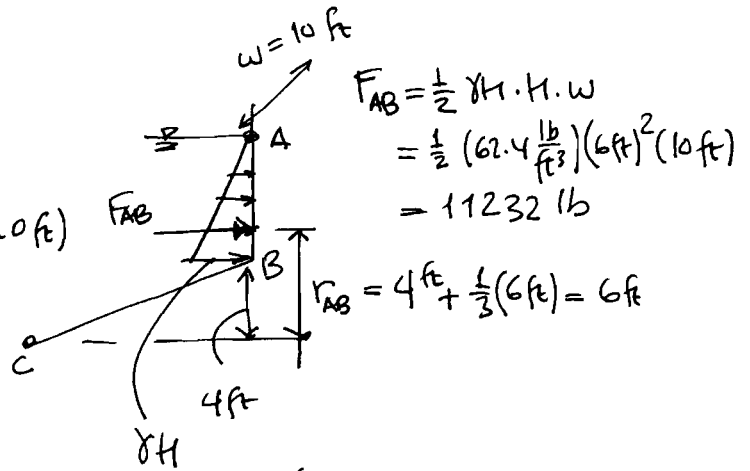 w = 10 ft
F_AB = 1/2 γH·H·w
= 1/2 (62.4 lb/ft³)(6ft)²(10ft)
= 11232 lb
A
.0 ft)
F_AB
B
r_AB = 4 ft + 1/3 (6ft) = 6ft
C
4ft
γH